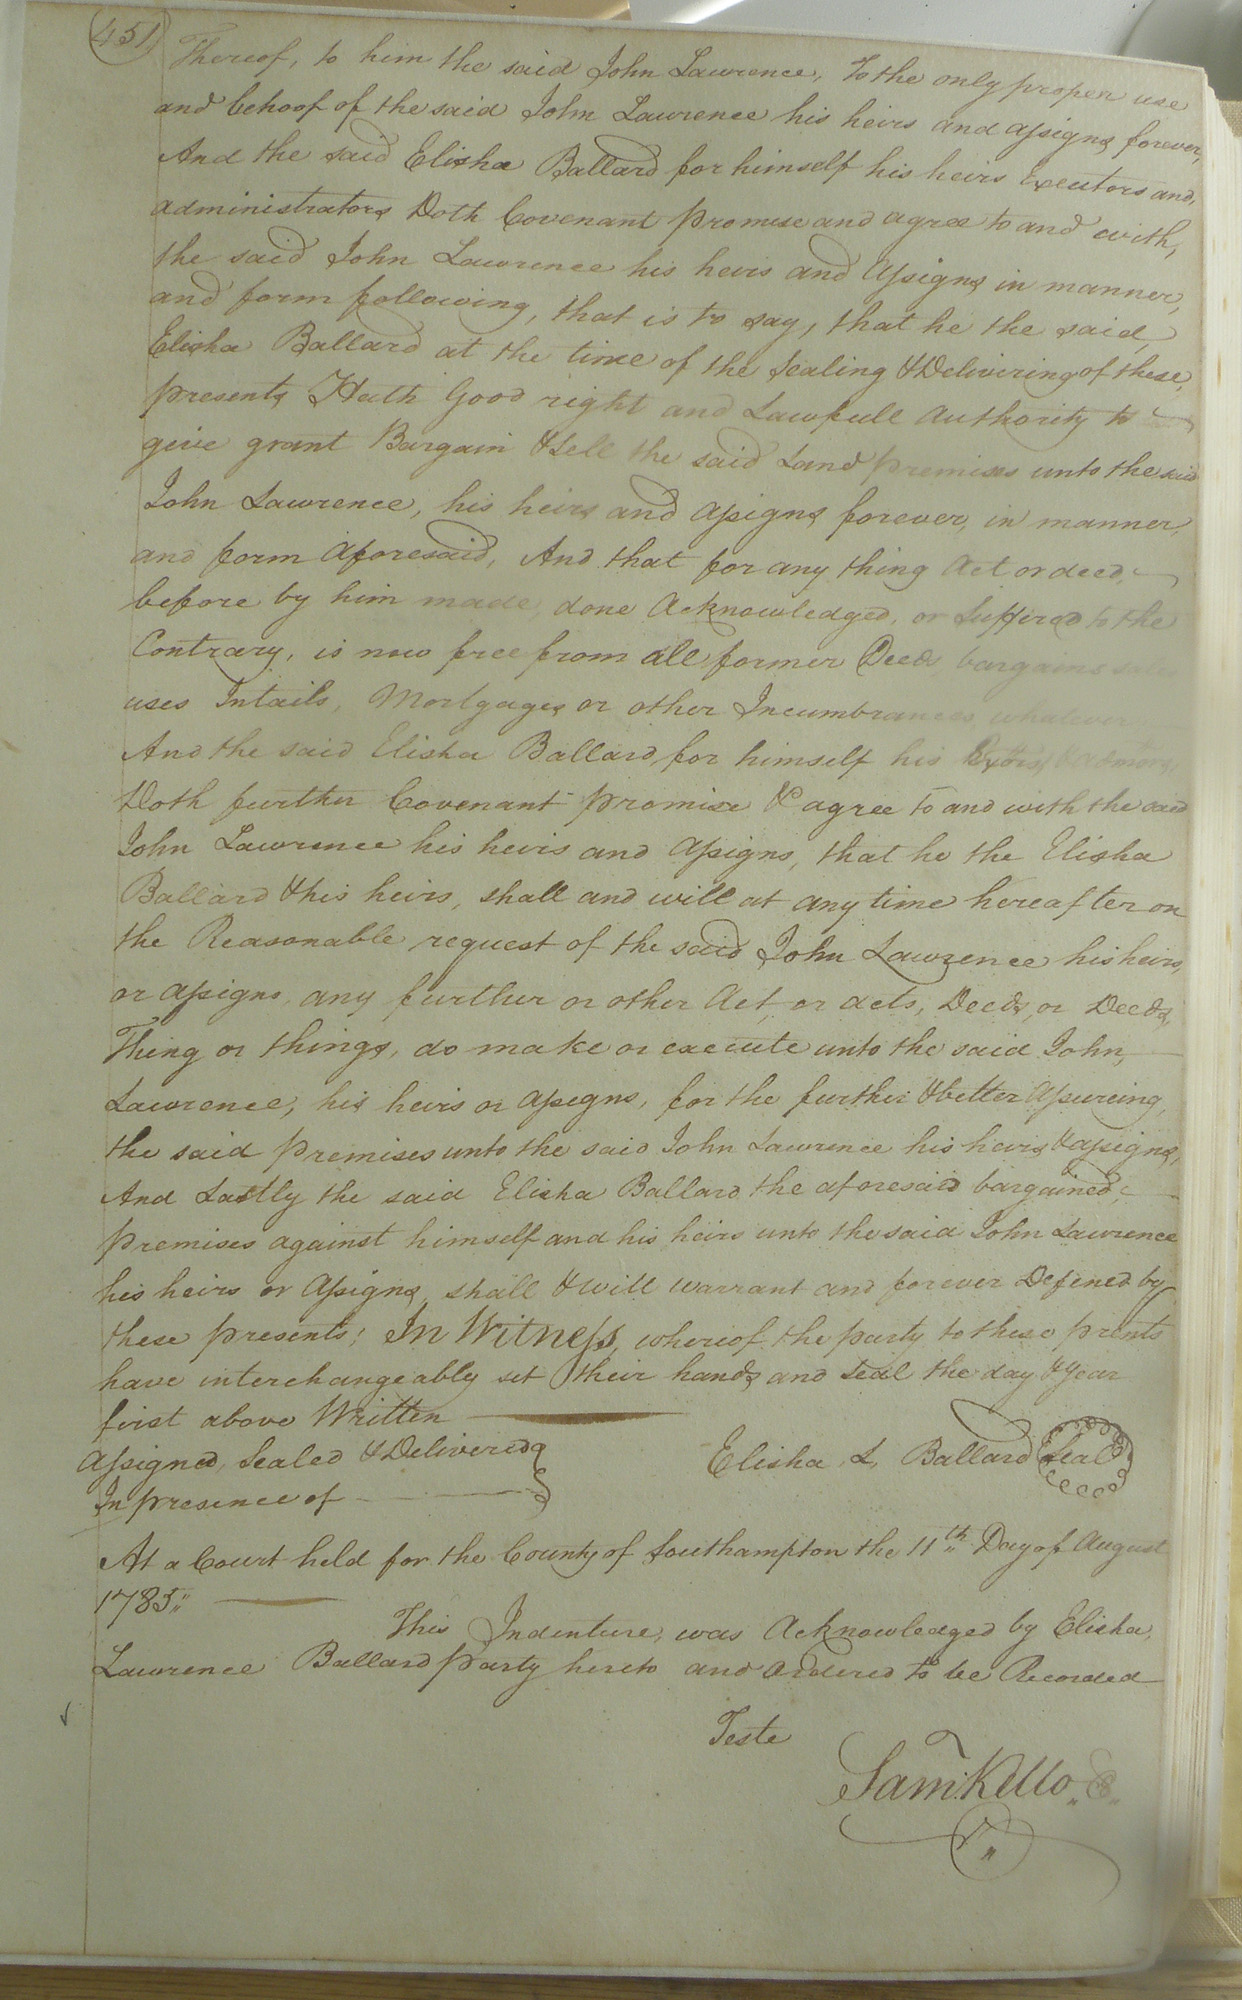 451
Thereof, to him the said John Lawrence, To the only proper use
and behoof of the said John Lawrence his heirs and assigns forever,
And the said Elisha Ballard for himself his heirs Executors and,
administrators Doth Covenant promise and agree to and with,
the said John Lawrence his heirs and Assigns in manner,
and form following, that is to say, that he the said,
Elisha Ballard at the time of the Sealing & Delivering of these,
presents Hath Good right and Lawfull Authority to
give grant Bargain & Sell the said Land premises unto the said
John Lawrence, his heirs and assigns forever, in manner,
and form Aforesaid, And that for any thing Act or deed,
before by him made, done Acknowledged, or Suffered to the
Contrary, is now free from all former Deeds bargains
uses Intails, Mortgages or other Incumbrances whatever
And the said Elisha Ballard, for himself his & admors,
Doth further Covenant promise & agree to and with the said
John Lawrence his heirs and Assigns, that he the Elisha
Ballard & his heirs, shall and will at any time hereafter on
the Reasonable request of the said John Lawrence his heirs,
or assigns, any further or other Act, or acts, Deeds, or Deeds,
Thing or things, do make or execute unto the said John,
Lawrence, his heirs or assigns, for the further & better Assureing,
the said premises unto the said John Lawrence his heirs & assigns,
And Lastly the said Elisha Ballard the aforesaid bargained,
premises against himself and his heirs unto the said John Lawrence
his heirs or Assigns, shall & will warrant and forever Defened by
these presents; In Witness, whereof the party to these prents
have interchangeably set their hands and Seal the day & Year
first above Written
Assigned, Sealed & Delivered
In presence of
Elisha L. Ballard Seal
At a Court held for the County of Southampton the 11th Day of August
1785
This Indenture, was Acknowledged by Elisha,
Lawrence Ballard party hereto and Ordered to be Recorded
Teste
Saml. Kello